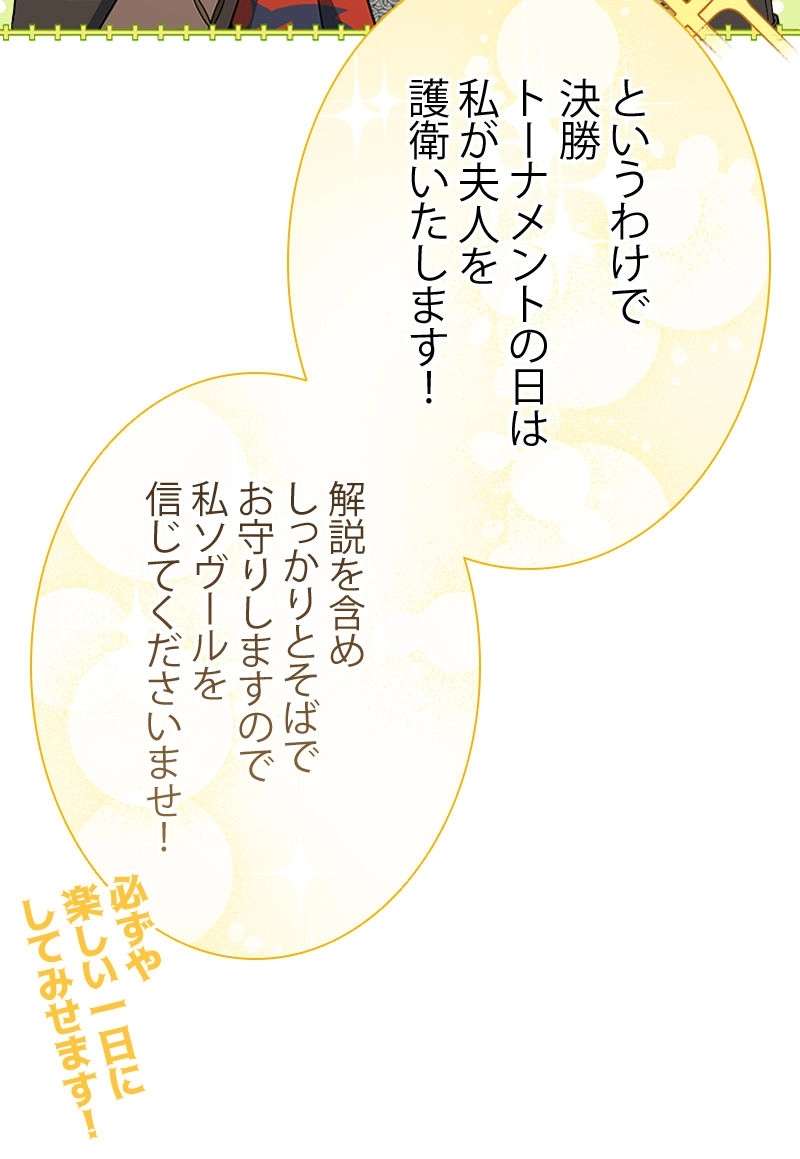 というわけで
決勝
トーナメントの日は
私が夫人を
護衛いたします！
解説を含め
しっかりとそばで
お守りしますので
私ソヴールを
信じてくださいませ！
必ずや
楽しい一日に
してみせます！